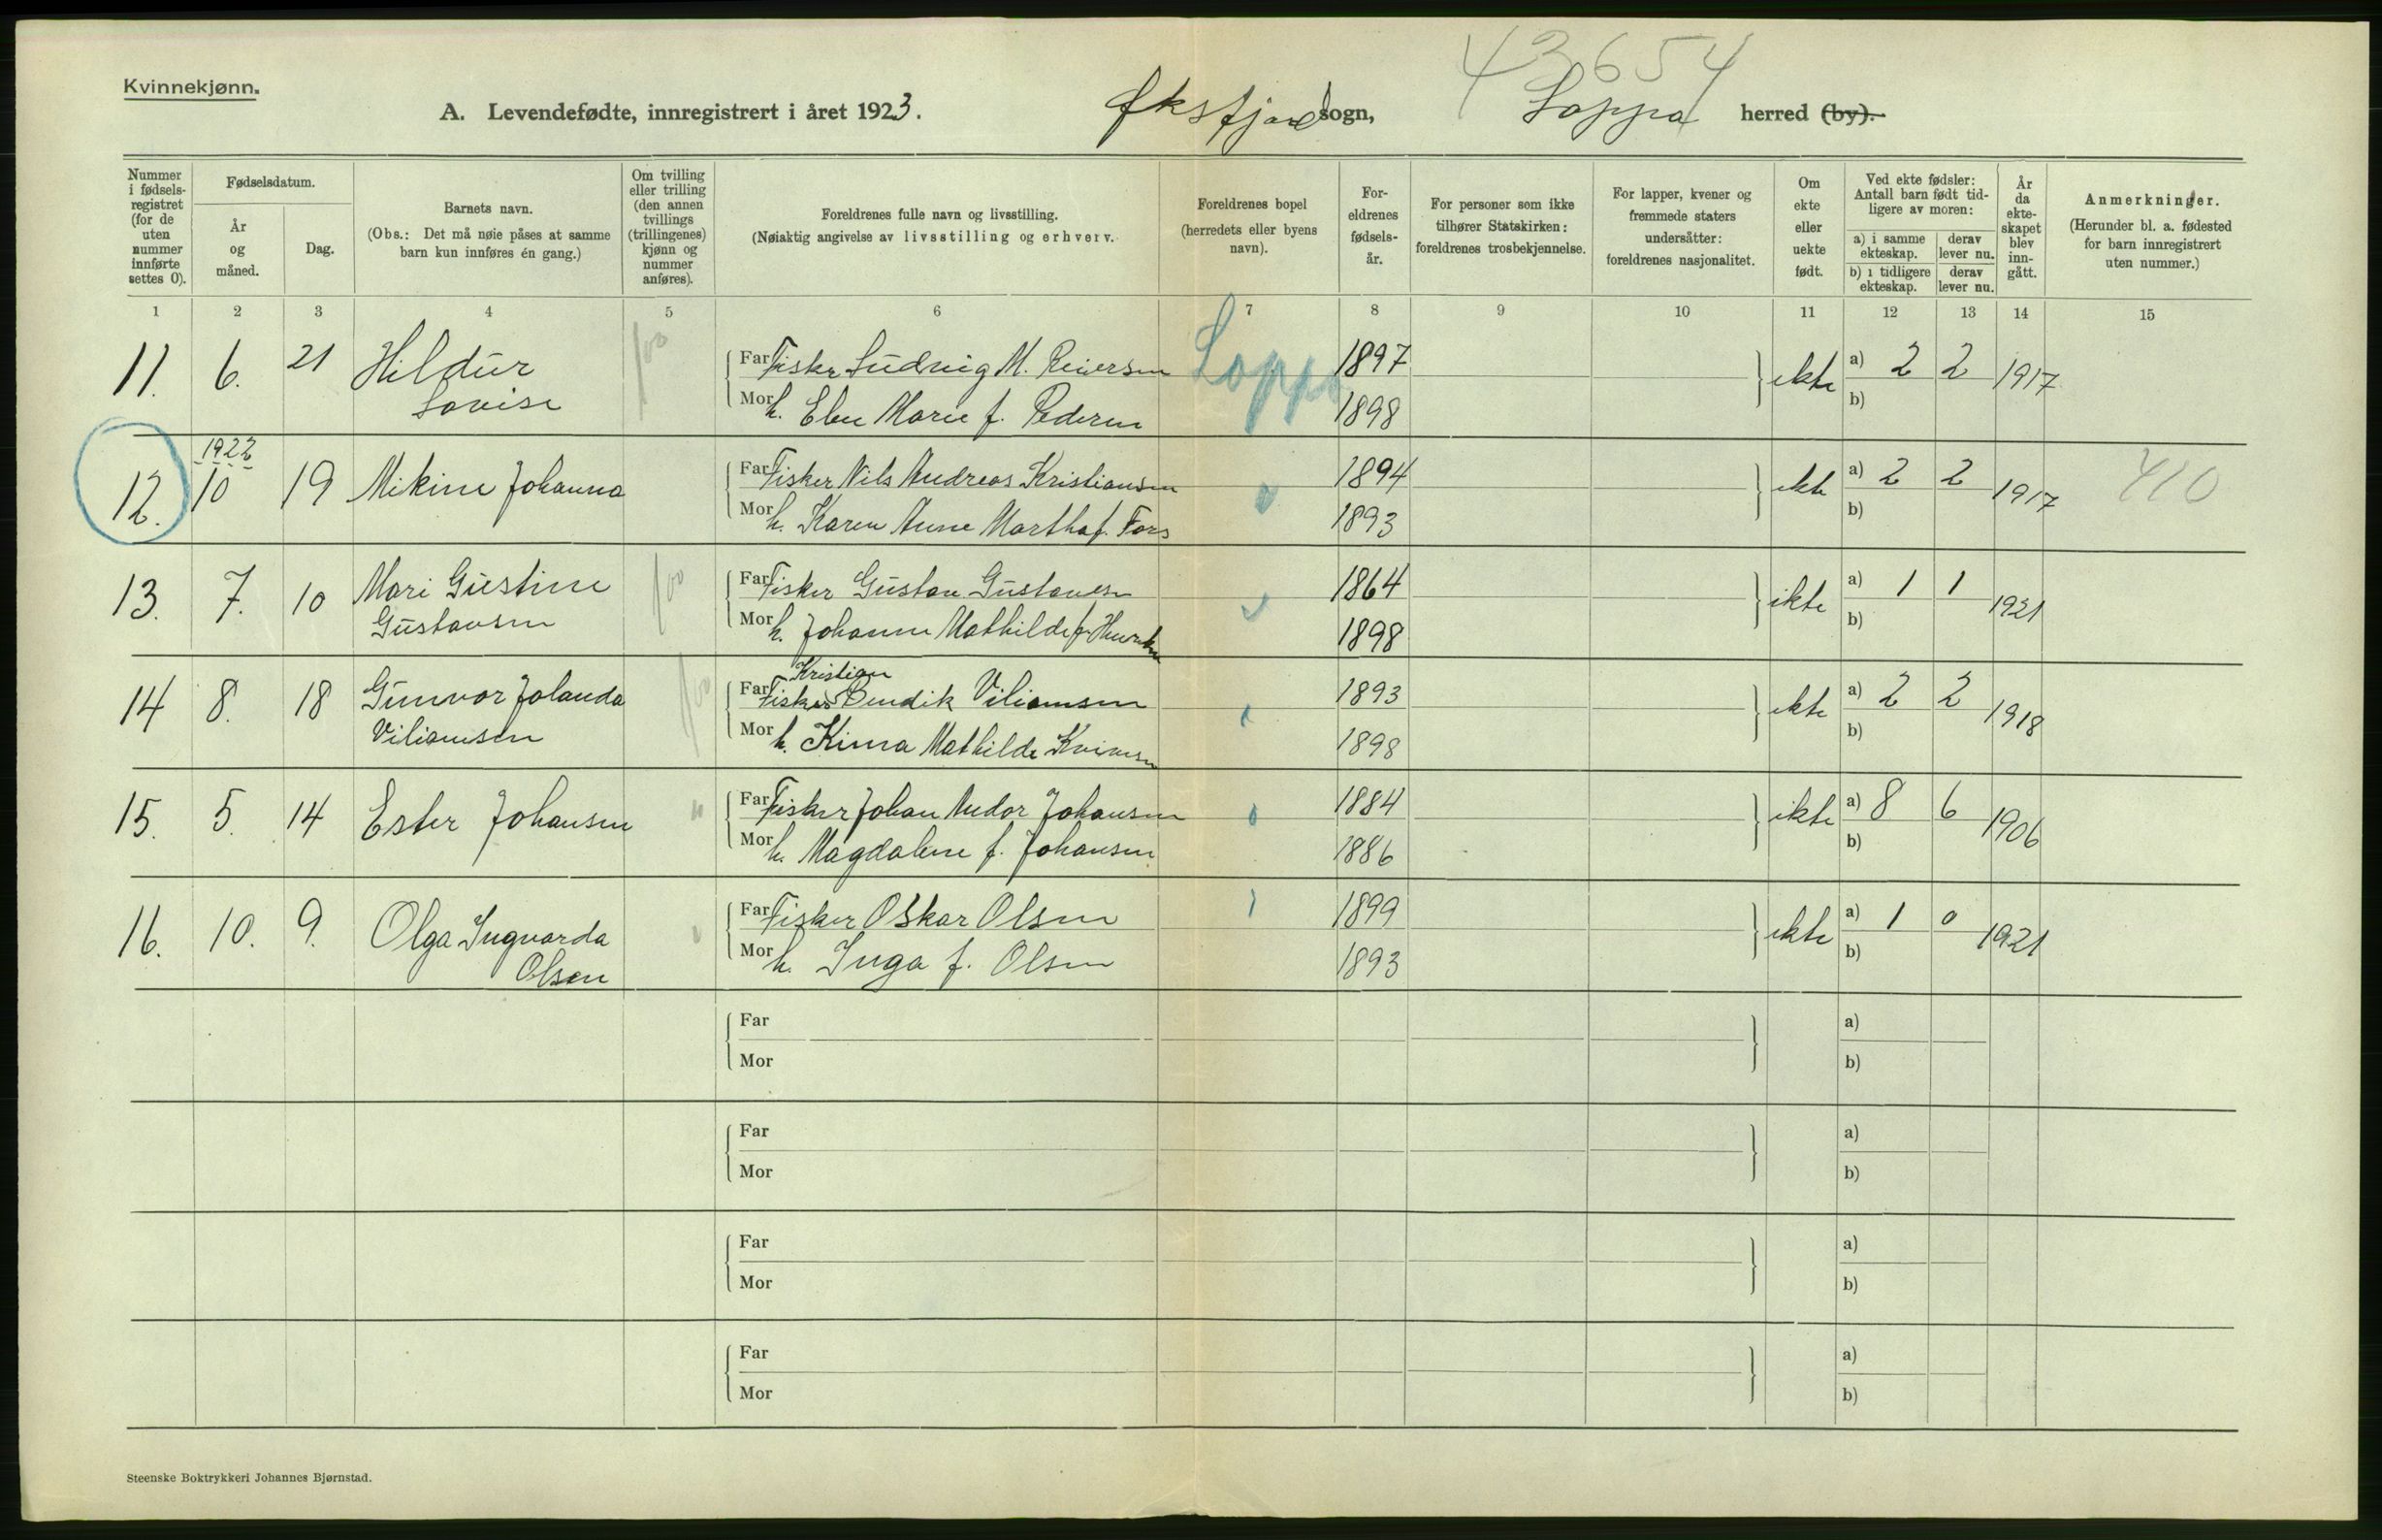 43654
Kvinnekjønn.
A. Levendefødte, innregistrert i året 1923. Øksfjord sogn, Loppa herred (by).
Nummer i fødsels-registret (for de uten nummer innførte settes 0).
Fødselsdatum.
År og måned.
Dag.
Barnets navn.
(Obs.: Det må nøie påses at samme barn kun innføres én gang.)
Om tvilling eller trilling (den annen tvillings (trillingenes) kjønn og nummer anføres).
Foreldrenes fulle navn og livsstilling.
(Nøiaktig angivelse av livsstilling og erhverv.
Foreldrenes bopel (herredets eller byens navn).
For-eldrenes fødsels-år.
For personer som ikke tilhører Statskirken: foreldrenes trosbekjennelse.
For lapper, kvener og fremmede staters undersåtter: foreldrenes nasjonalitet.
Om ekte eller uekte født.
Ved ekte fødsler: Antall barn født tid-ligere av moren:
a) i samme ekteskap. derav lever nu.
b) i tidligere ekteskap. derav lever nu.
År da ekte-skapet blev inn-gått.
Anmerkninger.
(Herunder bl. a. fødested for barn innregistrert uten nummer.)
1 2 3 4 5 6 7 8 9 10 11 12 13 14 15
11. 6. 21 Hildur Far Fisker Ludvig M. Reiersen Loppa 1897 ekte a) 2 2 1917
Lovise Mor h. Elen Marie f. Pedersen 1898 b)
1922
12. 10 19 Mikine Johanna Far Fisker Nils Andreas Kristiansen 1894 ekte a) 2 2 1917 410
Mor h. Karen Anne Martha f. Fors 1893 b)
13. 7. 10 Mari Gustine Far Fisker Gustav Gustavsen 1864 ekte a) 1 1 1921
Gustavsen Mor h. Johanne Mathilde f. 1898 b)
Kristian
14 8. 18 Gunvor Jolanda Far Fisker Bendik Viliamsen 1893 ekte a) 2 2 1918
Viliamsen Mor h. Kinna Mathilde 1898 b)
15. 5. 14 Ester Johansen Far Fisker Johan Andor Johansen 1884 ekte a) 8 6 1906
Mor h. Magdalene f. Johansen 1886 b)
16. 10. 9. Olga Ingvarda Far Fisker Oskar Olsen 1899 ekte a) 1 0 1921
Olsen Mor h. Inga f. Olsen 1893 b)
Far a)
Mor b)
Far a)
Mor b)
Far a)
Mor b)
Far a)
Mor b)
Steenske Boktrykkeri Johannes Bjørnstad.